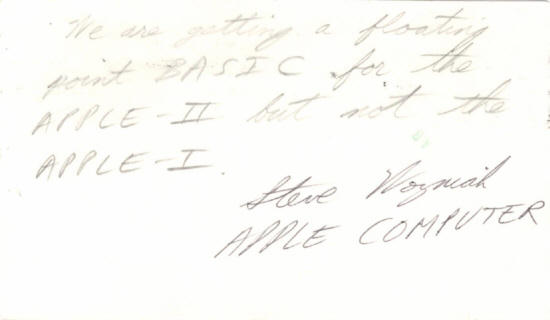 We are getting a floating
point BASIC for the
APPLE-II but not the
APPLE-I.
Steve Wozniak
APPLE COMPUTER